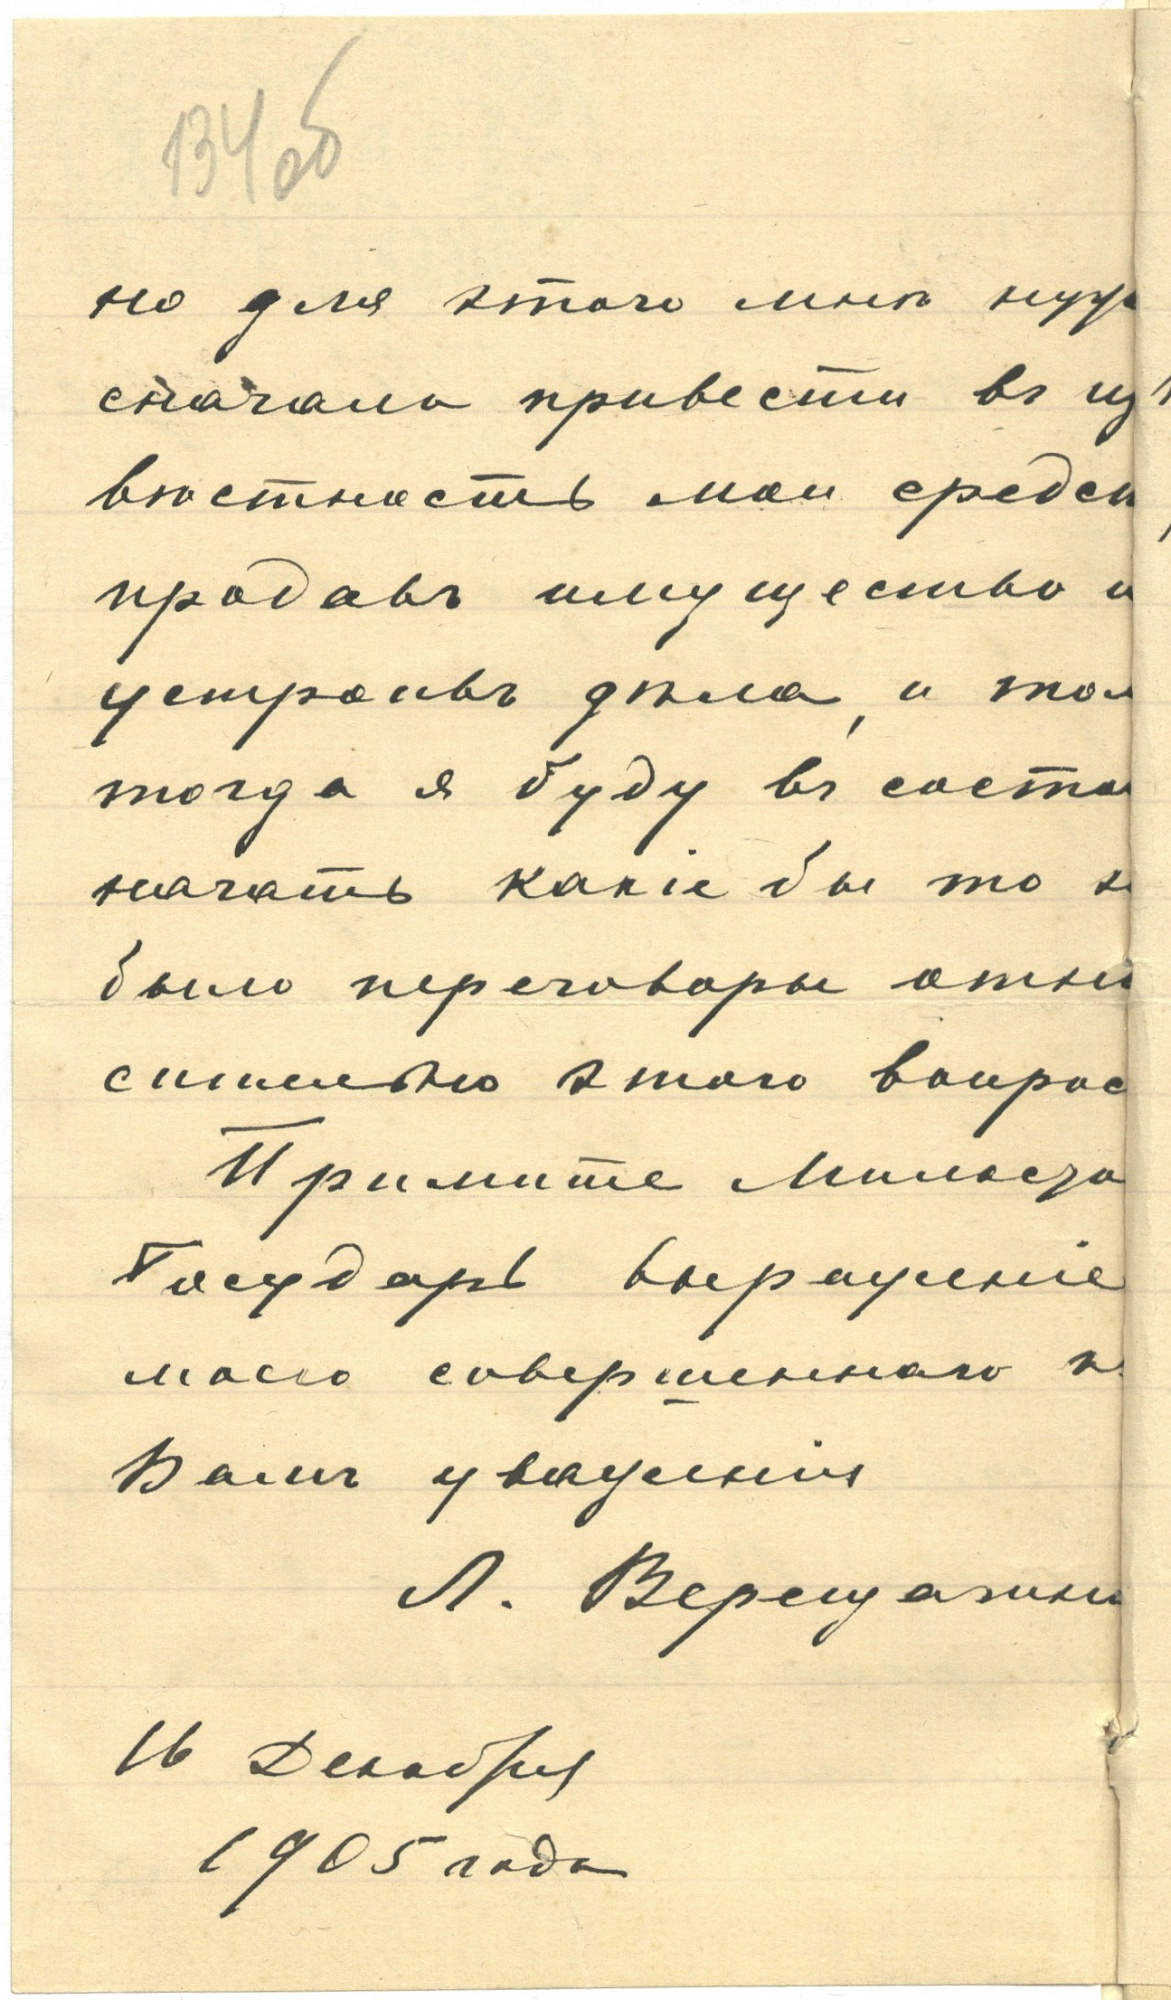 134об
но для этого мнѣ нуж
сначала привести въ из
вѣстность мои средст
продавъ имущество и
устроивъ дѣла, и тол
тогда я буду въ состоя
начать какіе бы то н
было переговоры отно
сительно этого вопрос
Примите Милости
Государь выраженіе
моего совершеннаго къ
Вамъ уваженія
Л. Верещагин
16 Декабря
1905 года